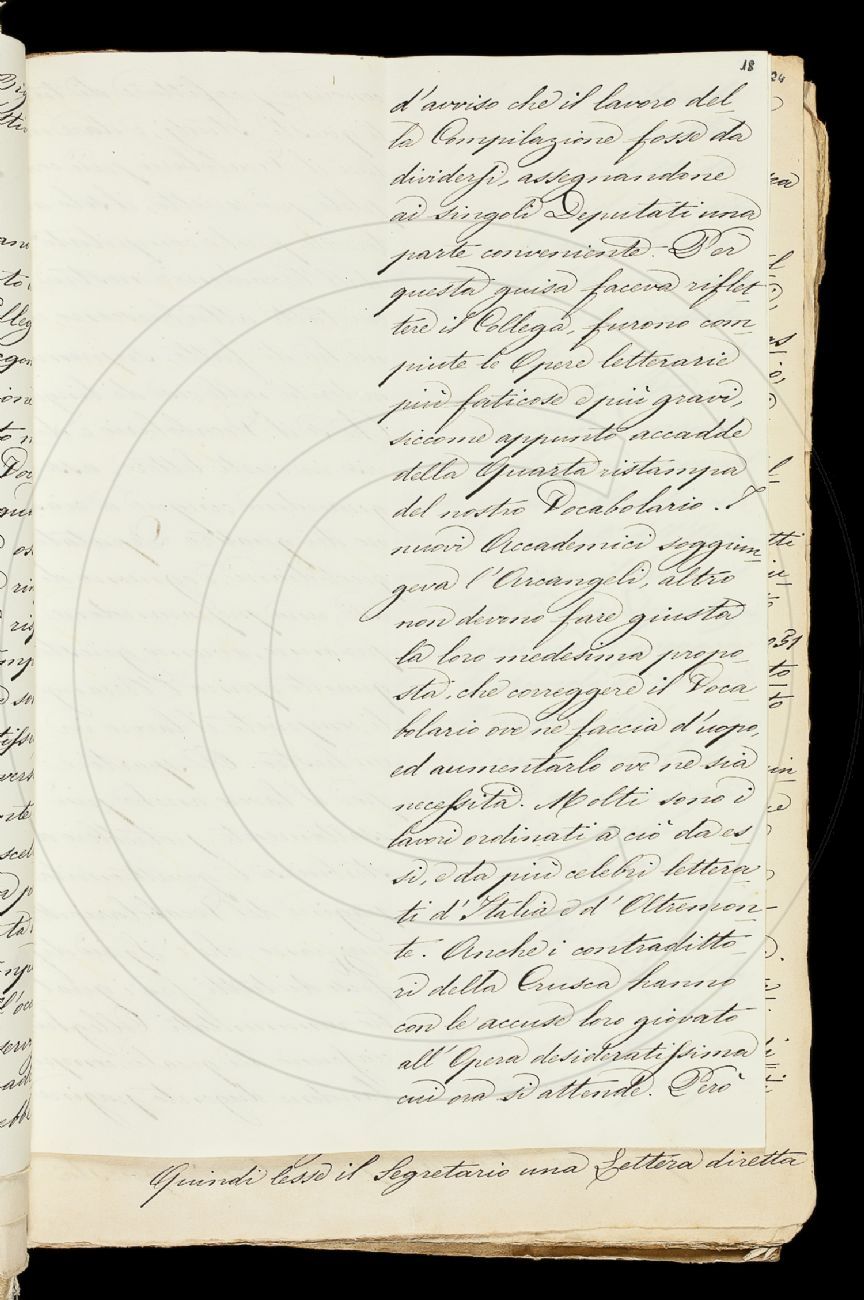 18
d'avviso che il lavoro del-
la Compilazione fosse da
dividersi, assegnandone
ai singoli Deputati una
parte conveniente. Per
questa guisa faceva riflet-
tere il Collega, furono com-
piute le Opere letterarie
più faticose e più gravi,
siccome appunto accadde
della Quarta ristampa
del nostro Vocabolario. I
nuovi Accademici soggiun-
geva l'Arcangeli, altro
non devono fare giusta
la loro medesima propo-
sta, che correggere il Voca-
bolario ove ne faccia d'uopo,
ed aumentarlo ove ne sia
necessità. Molti sono i
lavori ordinati a ciò da es-
si, e da più celebri lettera-
ti d'Italia e d'Oltremon-
te. Anche i contraditto-
ri della Crusca hanno
con le accuse loro giovato
all'Opera desideratissima
cui ora si attende. Però
Quindi lesse il Segretario una Lettera diretta